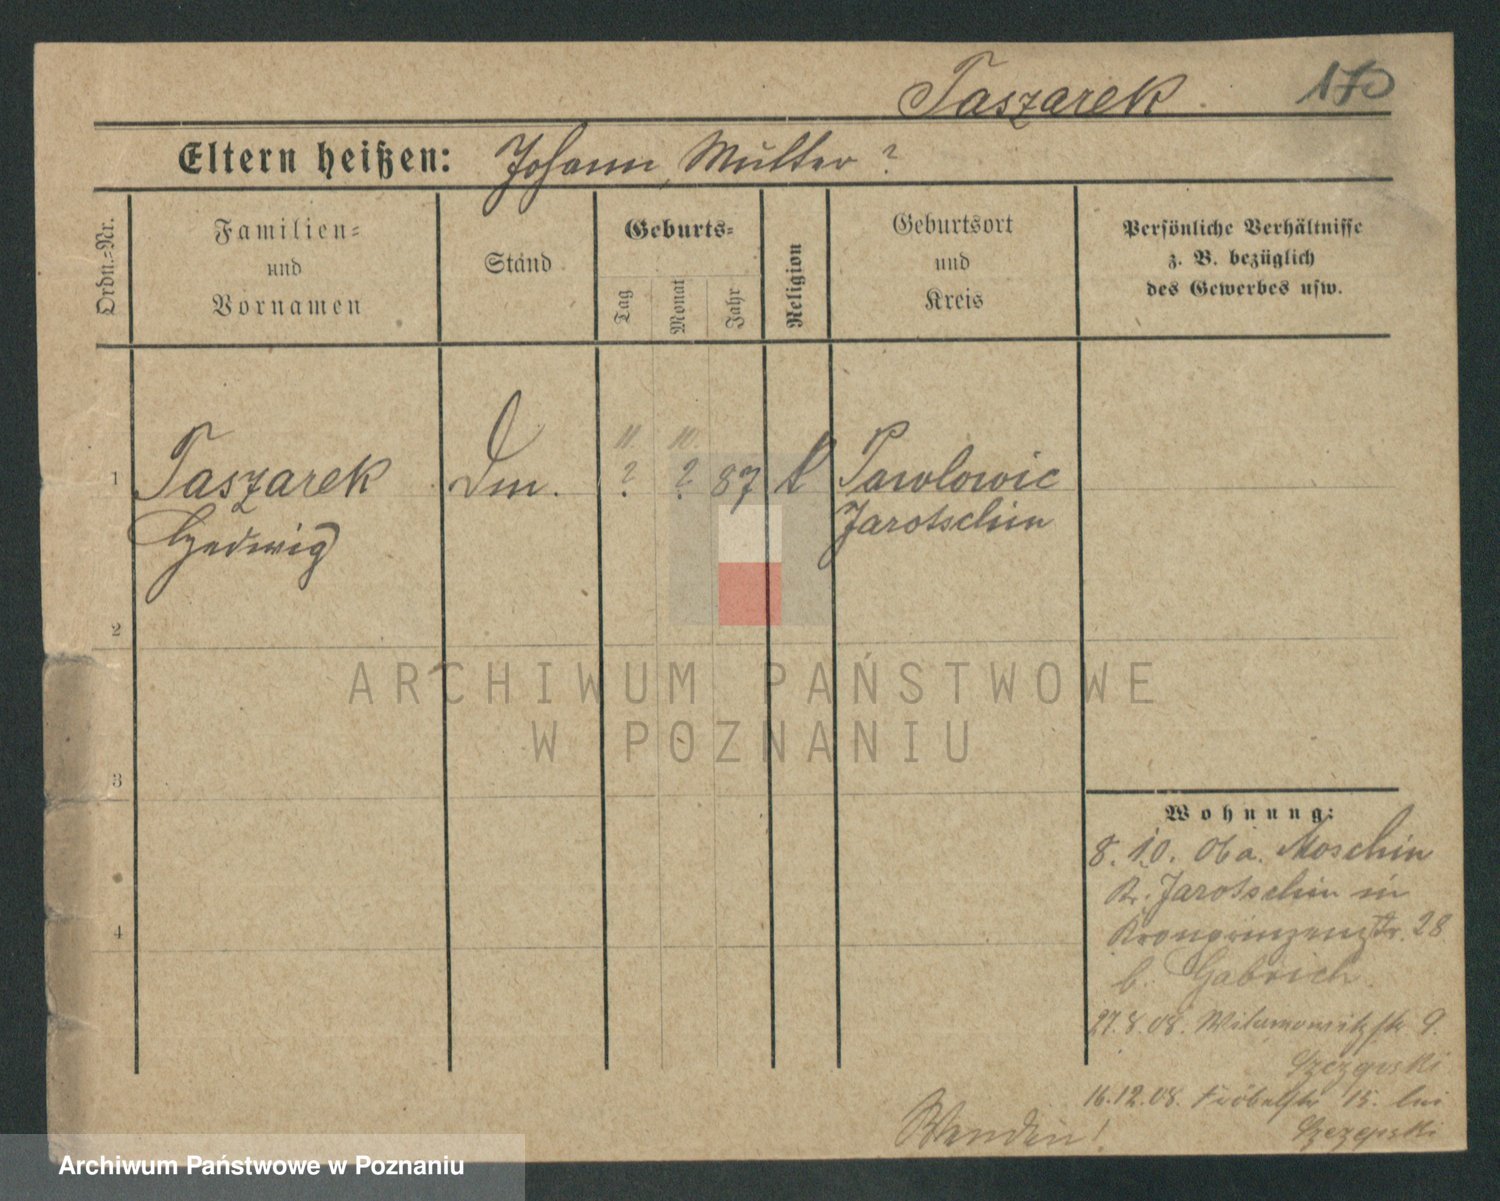 Taszarek. 170
Eltern heißen: Johann, Mutter ?
Ordn.-Nr.
Familien-
und
Vornamen
Stand
Geburts-
Tag
Monat
Jahr
Religion
Geburtsort
und
Kreis
Persönliche Verhältnisse
z. B. bezüglich
des Gewerbes usw.
1 Taszarek ? ? 87 k Pawlowic
Hedwig Jarotschin
2
3
4
Wohnung:
8. 10. 06 a. Moschin
Kr. Jarotschin in
Kronprinzenstr. 28
b. Gabrich
27.8.08. 9.
Szczepski
16.12.08. Fröbelstr 15. bei
Szczepski
Wenden!
ARCHIWUM PAŃSTWOWE
W POZNANIU
Archiwum Państwowe w Poznaniu